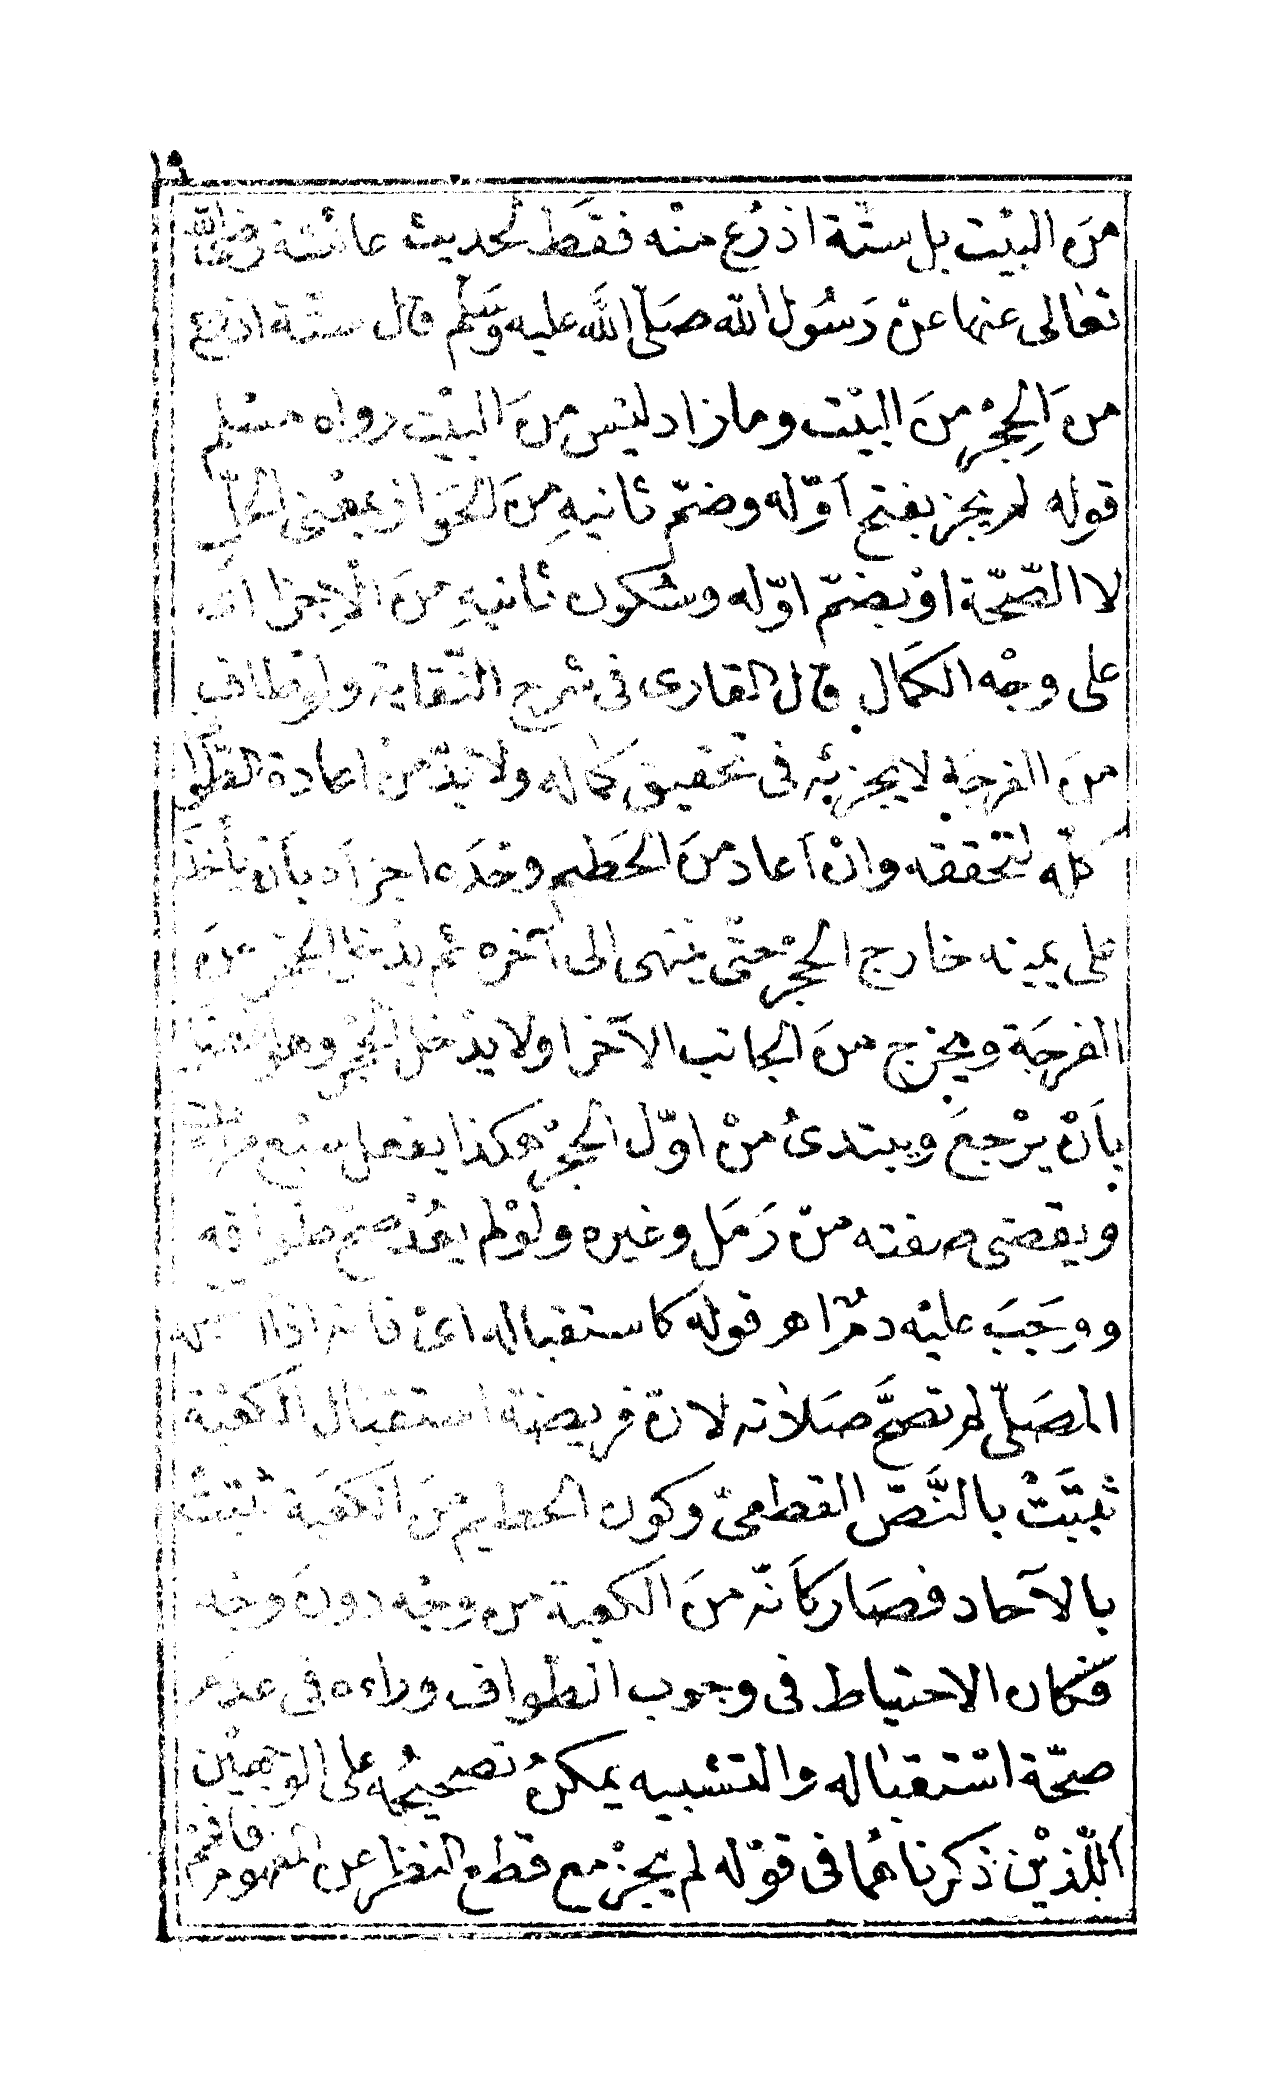 ١٩
منَ البيْت بل ستّة اذرُع منْه فقَط لحديث عائشة رضي الله
تعٰالى عنها عنْ رَسُول الله صَلّى الله عليه وَسَلّم قال ستّة اذرع
من الحِجْر منَ البيْت وما زاد ليْس منَ البيْت رواه مسْلم
قوله لم يجز بفتح اَوّله وضمّ ثانيهِ منَ الجَواز بمعْنى الحلّ
لا الصّحّة اوْ بضمّ اوّله وسْكون ثانيهِ منَ الاِجزاء اى
على وجْه الكمَال قال القارى فى شرح النّقاية ولوْ طاف
منَ الفرجَة لا يجزئه فى تحقيق كماله ولا بدّ منْ اعادة الطّواف
كلّه لتحققه وانْ اَعاد منَ الحَطيم وحْدَه اجزأه بأن يأخذ
على يمينه خارج الحجْر حتّى ينْتهى الى آخره ثم يدْخل الحجْر منَ
الفرجَة ويخرج منَ الجانب الآخر او لا يدْخل الحِجْر وهو افْضل
بأنْ يرْجعَ ويبتدئُ منْ اوّل الحجْر هكذا يفعل سبْع مرّات
ويقضى صفته منْ رَمَل وغيره ولوْ لم يعُدْ صحّ طوافه
ووجَبَ عليْه دمٌ اهـ قوله كاستقباله اىْ فانه اذا استقبله
المصَلّى لم تصحَّ صَلاٰته لان فريضة استقبال الكعْبة
ثبتَتْ بالنَّصّ القطعىّ وكون الحطيم منَ الكعْبَة ثبتتْ
بالآحاد فصَار كأَنّه منَ الكعبة من وجْه دونَ وجْه
فكان الاحتياط فى وجوب الطّواف وراءه فى عدَم
صحّة اسْتقبٰاله والتشبيه يمكنُ تصحيحُه على الوَجهيْن
اَللّذيْن ذكرناهُما فى قوْله لم يجزْ مع قطْع النظر عن المفهوم فافهم